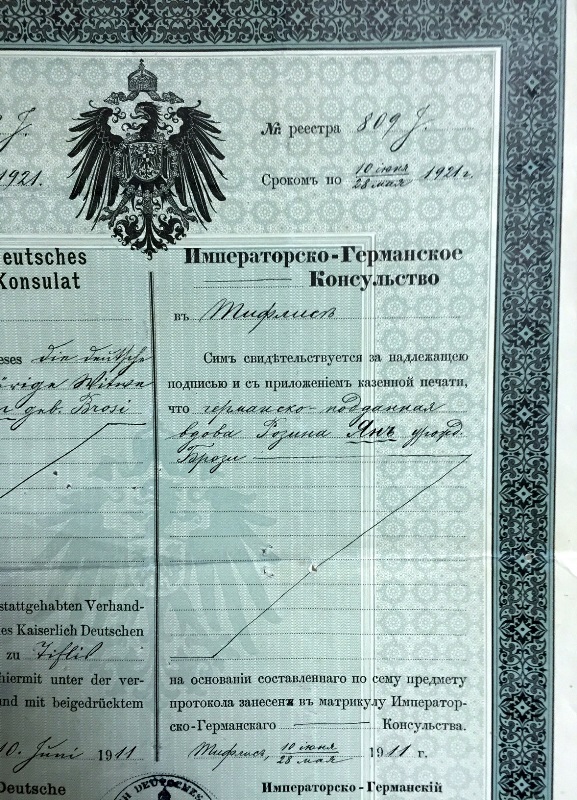 J.
№ реестра 809 J.
1921.
Срокомъ по 10 июня / 28 мая 1921 г.
eutsches
Konsulat
Императорско-Германское
Консульство
въ Тифлисъ
eses die deutsche
örige Witwe
geb. Brosi
Симъ свидѣтельствуется за надлежащею
подписью и съ приложеніемъ казенной печати,
что германско-подданная
вдова Розина Янъ урожд.
Брози
stattgehabten Verhand-
es Kaiserlich Deutschen
zu Tiflis
hiermit unter der ver-
und mit beigedrücktem
на основаніи составленнаго по сему предмету
протокола занесена въ матрикулу Император-
ско-Германскаго Консульства.
10. Juni 1911
Тифлисъ, 10 июня / 28 мая 1911 г.
Deutsche
DEUTSCHES
Императорско-Германскій